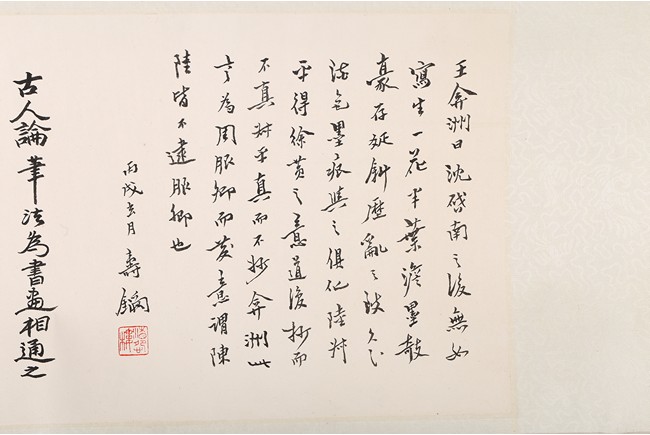 王弇洲曰沈啓南之後無如
寫生一花半葉澹墨欹
豪存斜歷亂之致久
色墨痕與之俱化陸叔
平得徐黃之意道復妙而
不真叔平真而不妙弇洲此
言為周服卿而發意謂陳
陸皆不逮服卿也
丙戌月 壽
古人論筆法為書畫相通之